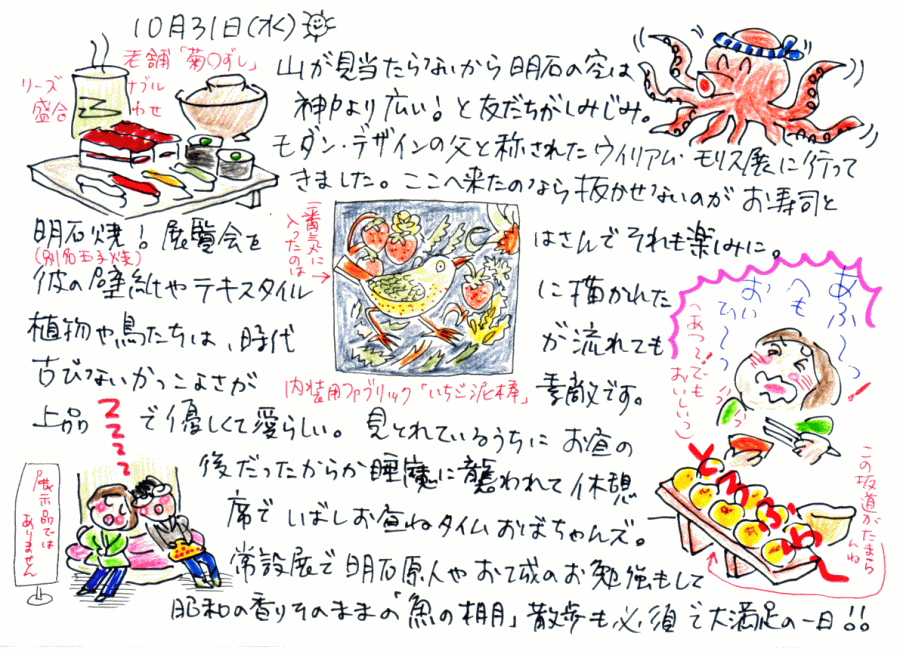 10月31日(水)
老舗「菊〇ずし」
リーズナブル
盛合わせ
山が見当たらないから明石の空は
神戸より広い！と友だちがしみじみ。
モダン・デザインの父と称されたウィリアム・モリス展に行って
きました。ここへ来たのなら抜かせないのがお寿司と
明石焼！展覧会を
(別名玉子焼)
はさんでそれも楽しみに。
一番気に
入ったのは
彼の壁紙やテキスタイル
に描かれた
植物や鳥たちは、時代
が流れても
古びないかっこよさが
素敵です。
内装用ファブリック「いちご泥棒」
上品で優しくて愛らしい。見とれているうちにお昼の
後だったからか睡魔に襲われて休憩
席でしばしお昼ねタイムおばちゃんズ。
常設展で明石原人やお城のお勉強もして
昭和の香りそのままの「魚の棚」散歩も必須で大満足の一日！！
zzzz
展示品では
ありません
あふ〜っ
へも
おいひ〜っ
(あつっ！でも
おいしいっ)
この坂道がたまら
んね